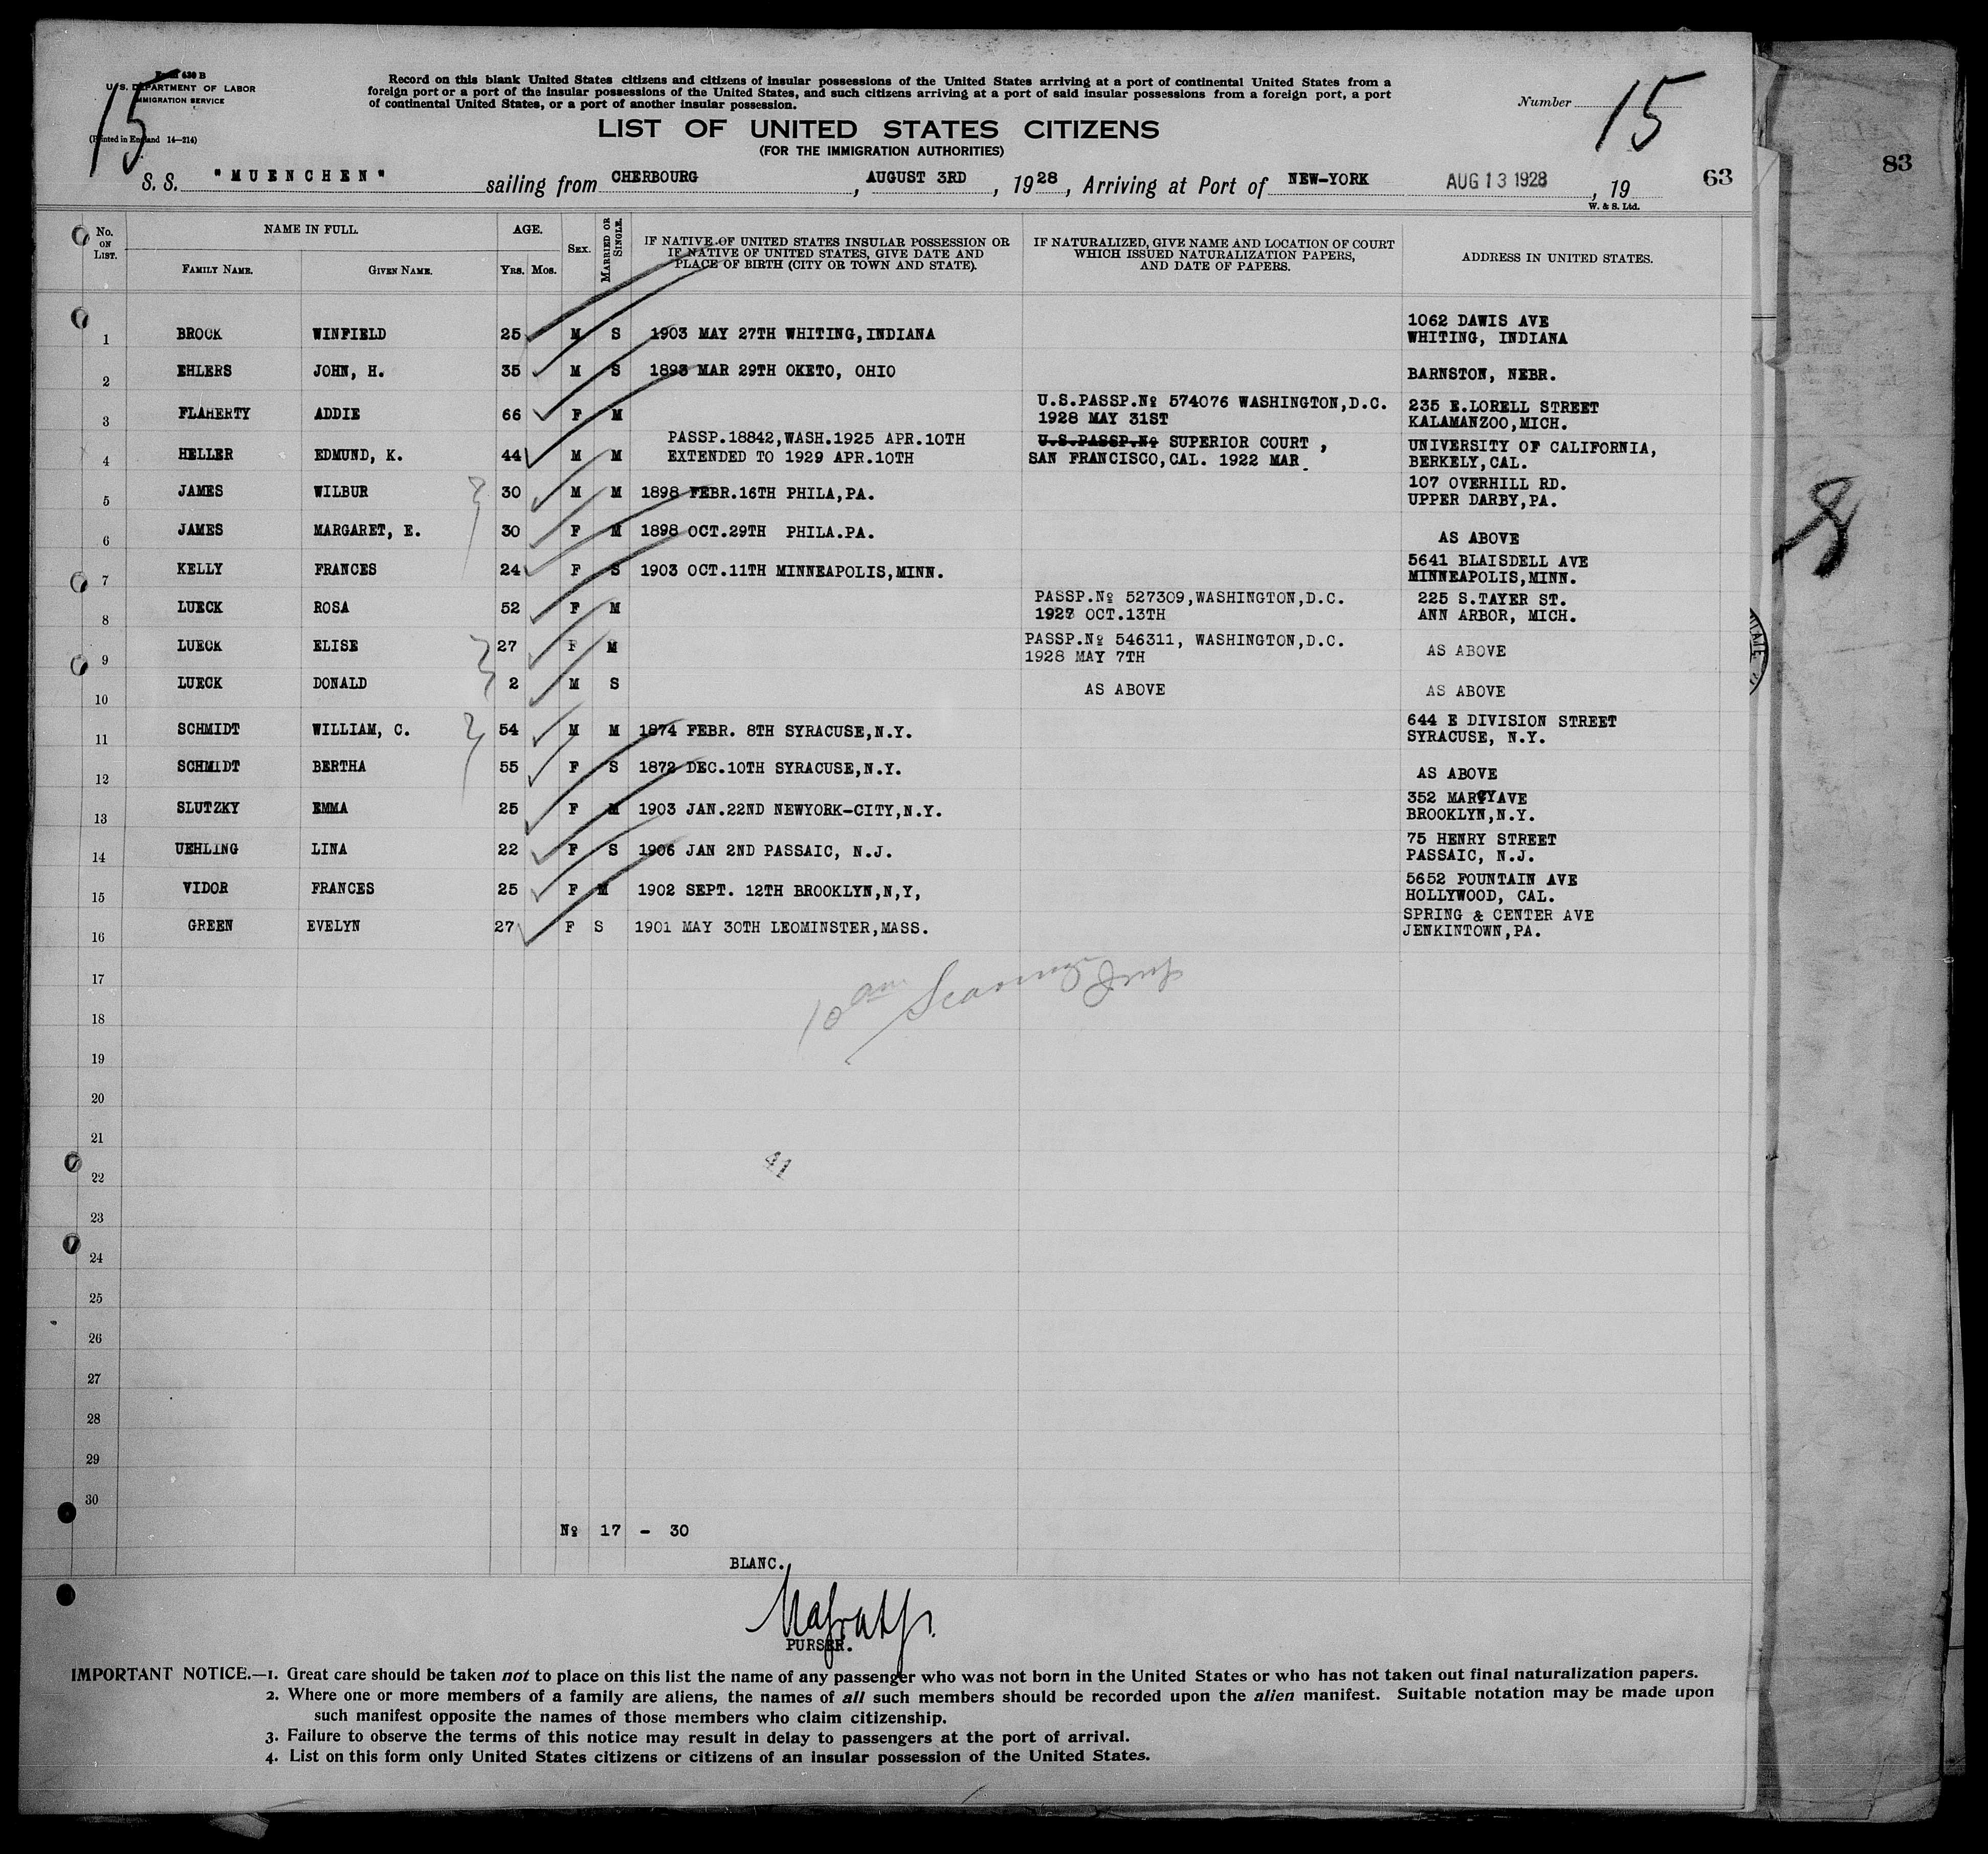 Form 630 B
U. S. DEPARTMENT OF LABOR
IMMIGRATION SERVICE
(Printed in England 14—214)
15
Record on this blank United States citizens and citizens of insular possessions of the United States arriving at a port of continental United States from a
foreign port or a port of the insular possessions of the United States, and such citizens arriving at a port of said insular possessions from a foreign port, a port
of continental United States, or a port of another insular possession.
Number 15
LIST OF UNITED STATES CITIZENS
(FOR THE IMMIGRATION AUTHORITIES)
S. S. "MUENCHEN" sailing from CHERBOURG, AUGUST 3RD, 1928, Arriving at Port of NEW-YORK AUG 13 1928, 19
63
83
W. & S. Ltd.
No. ON LIST. NAME IN FULL. AGE. SEX. MARRIED OR SINGLE. IF NATIVE OF UNITED STATES INSULAR POSSESSION OR IF NATIVE OF UNITED STATES, GIVE DATE AND PLACE OF BIRTH (CITY OR TOWN AND STATE). IF NATURALIZED, GIVE NAME AND LOCATION OF COURT WHICH ISSUED NATURALIZATION PAPERS, AND DATE OF PAPERS. ADDRESS IN UNITED STATES.
FAMILY NAME. GIVEN NAME. YRS. MOS.
1 BROCK WINFIELD 25 M S 1903 MAY 27TH WHITING, INDIANA 1062 DAWIS AVE WHITING, INDIANA
2 EHLERS JOHN, H. 35 M S 1893 MAR 29TH OKETO, OHIO BARNSTON, NEBR.
3 FLAHERTY ADDIE 66 F M U.S.PASSP.Nº 574076 WASHINGTON,D.C. 1928 MAY 31ST 235 E.LORELL STREET KALAMANZOO,MICH.
4 HELLER EDMUND, K. 44 M M PASSP.18842,WASH.1925 APR.10TH EXTENDED TO 1929 APR.10TH U.S.PASSP.Nº SUPERIOR COURT , SAN FRANCISCO,CAL. 1922 MAR. UNIVERSITY OF CALIFORNIA, BERKELY,CAL.
5 JAMES WILBUR 30 M M 1898 FEBR.16TH PHILA,PA. 107 OVERHILL RD. UPPER DARBY,PA.
6 JAMES MARGARET, E. 30 F M 1898 OCT.29TH PHILA.PA. AS ABOVE
7 KELLY FRANCES 24 F S 1903 OCT.11TH MINNEAPOLIS,MINN. 5641 BLAISDELL AVE MINNEAPOLIS,MINN.
8 LUECK ROSA 52 F M PASSP.Nº 527309,WASHINGTON,D.C. 1927 OCT.13TH 225 S.TAYER ST. ANN ARBOR, MICH.
9 LUECK ELISE 27 F M PASSP.Nº 546311, WASHINGTON,D.C. 1928 MAY 7TH AS ABOVE
10 LUECK DONALD 2 M S AS ABOVE AS ABOVE
11 SCHMIDT WILLIAM, C. 54 M M 1874 FEBR. 8TH SYRACUSE,N.Y. 644 E DIVISION STREET SYRACUSE, N.Y.
12 SCHMIDT BERTHA 55 F S 1872 DEC.10TH SYRACUSE,N.Y. AS ABOVE
13 SLUTZKY EMMA 25 F M 1903 JAN.22ND NEWYORK-CITY,N.Y. 352 MARCY AVE BROOKLYN,N.Y.
14 UEHLING LINA 22 F S 1906 JAN 2ND PASSAIC, N.J. 75 HENRY STREET PASSAIC, N.J.
15 VIDOR FRANCES 25 F M 1902 SEPT. 12TH BROOKLYN,N,Y, 5652 FOUNTAIN AVE HOLLYWOOD, CAL.
16 GREEN EVELYN 27 F S 1901 MAY 30TH LEOMINSTER,MASS. SPRING & CENTER AVE JENKINTOWN,PA.
17
10
18
19
20
21
41
22
23
24
25
26
27
28
29
30
Nº 17 - 30
BLANC.
PURSER.
8
IMPORTANT NOTICE.—1. Great care should be taken not to place on this list the name of any passenger who was not born in the United States or who has not taken out final naturalization papers.
2. Where one or more members of a family are aliens, the names of all such members should be recorded upon the alien manifest. Suitable notation may be made upon
such manifest opposite the names of those members who claim citizenship.
3. Failure to observe the terms of this notice may result in delay to passengers at the port of arrival.
4. List on this form only United States citizens or citizens of an insular possession of the United States.